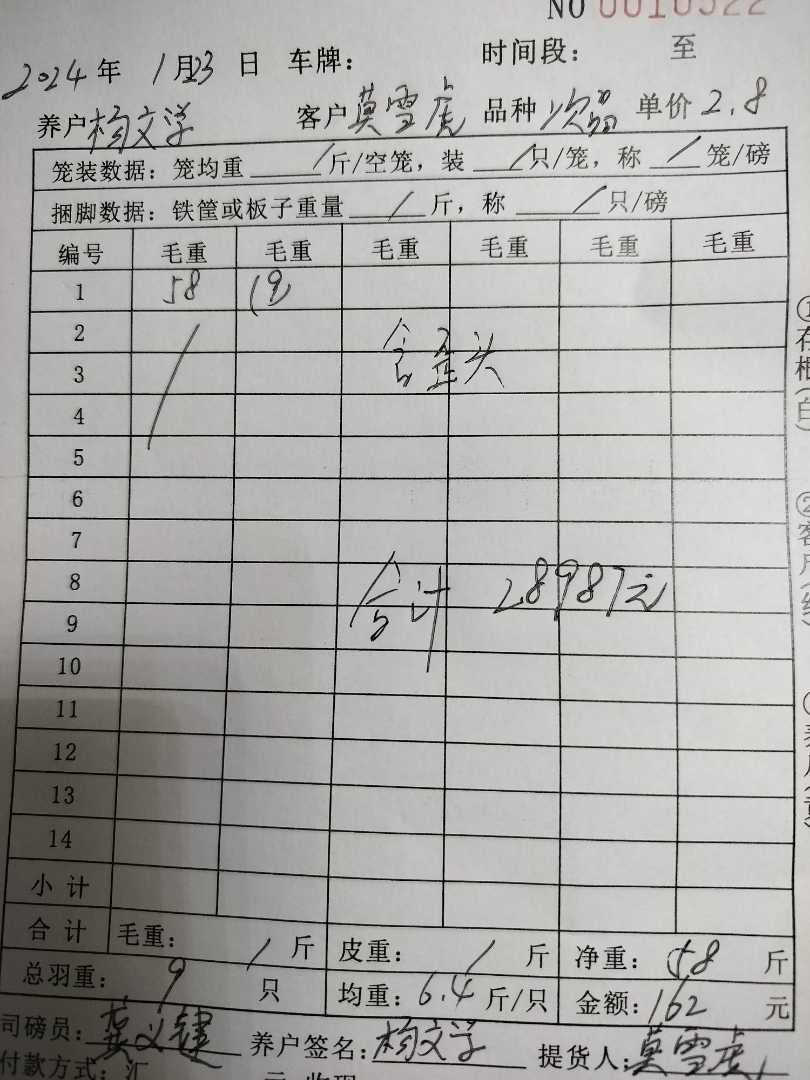 NO 0010522
2024年 1月23日 车牌： 时间段： 至
养户 杨文学 客户 莫雪虎 品种 次品 单价 2.8
笼装数据：笼均重 / 斤/空笼，装 / 只/笼，称 / 笼/磅
捆脚数据：铁筐或板子重量 / 斤，称 / 只/磅
编号 毛重 毛重 毛重 毛重 毛重 毛重
1 58 (9)
2
含歪头
3
4
5
6
7
8
合计 28987元
9
10
11
12
13
14
小计
合计 毛重： / 斤 皮重： / 斤 净重：58 斤
总羽重： 9 只 均重：6.4 斤/只 金额：162 元
司磅员： 养户签名：杨文学 提货人：莫雪虎
付款方式：汇
①存根(白)